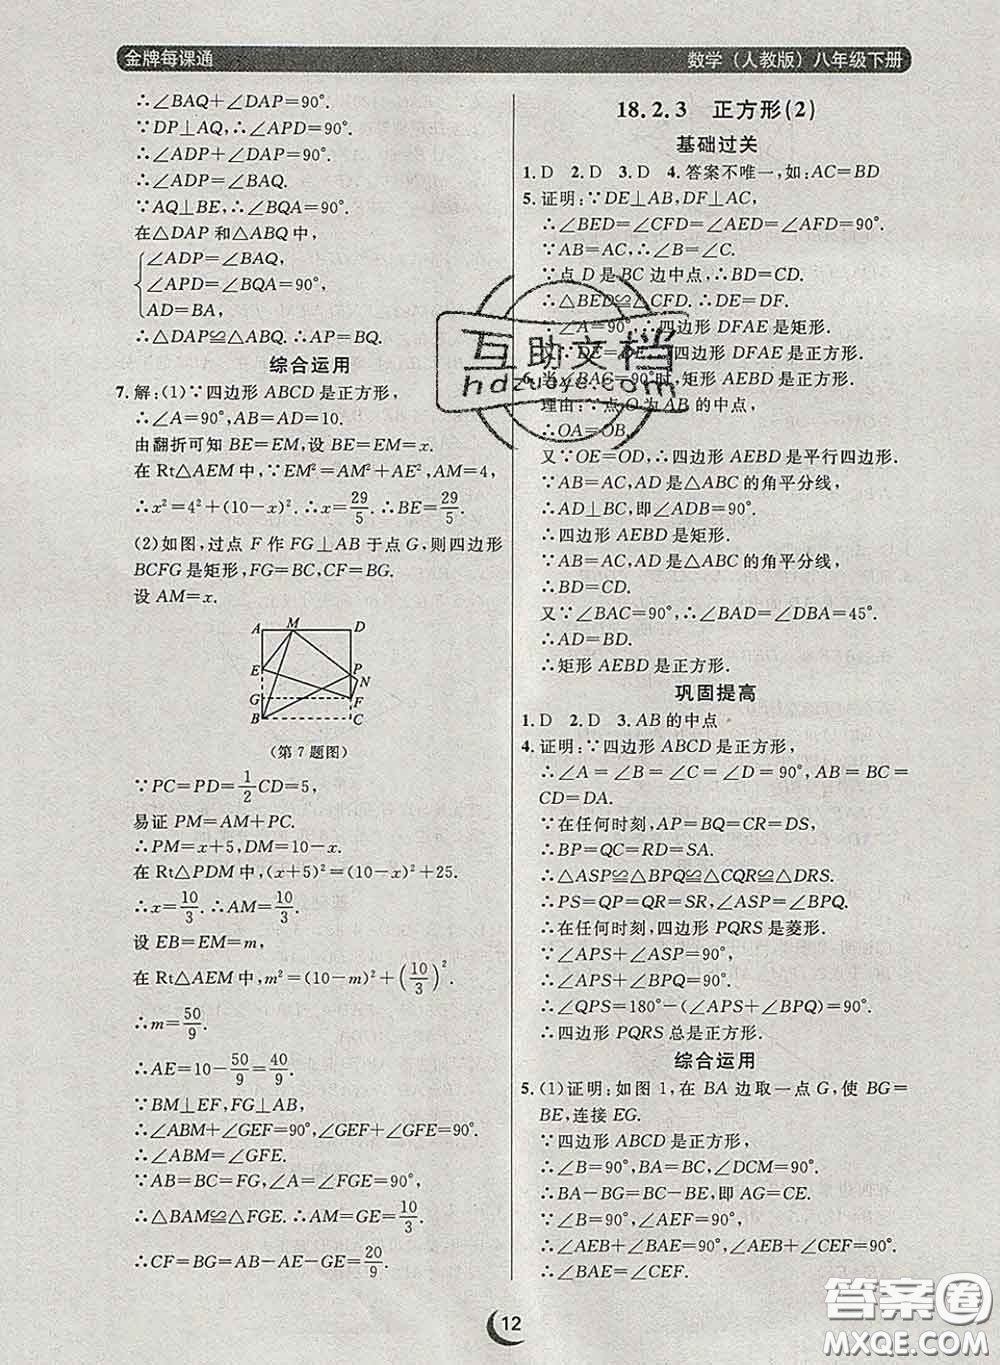 金牌每课通
数学（人教版）八年级下册
∴∠BAQ＋∠DAP＝90°.
∵DP⊥AQ,∴∠APD＝90°.
∴∠ADP＋∠DAP＝90°.
∴∠ADP＝∠BAQ.
∵AQ⊥BE,∴∠BQA＝90°.
在△DAP和△ABQ中,
∠ADP＝∠BAQ,
∠APD＝∠BQA＝90°,
AD＝BA,
∴△DAP≌△ABQ. ∴AP＝BQ.
综合运用
7. 解:(1)∵四边形ABCD是正方形,
∴∠A＝90°,AB＝AD＝10.
由翻折可知BE＝EM,设BE＝EM＝x.
在Rt△AEM中,∵EM²＝AM²＋AE²,AM＝4,
∴x²＝4²＋(10－x)². ∴x＝29/5. ∴BE＝29/5.
(2)如图,过点F作FG⊥AB于点G,则四边形
BCFG是矩形,FG＝BC,CF＝BG.
设AM＝x.
A M D
E P
N
G F
B C
(第7题图)
∵PC＝PD＝1/2CD＝5,
易证PM＝AM＋PC.
∴PM＝x＋5,DM＝10－x.
在Rt△PDM中,(x＋5)²＝(10－x)²＋25.
∴x＝10/3. ∴AM＝10/3.
设EB＝EM＝m,
在Rt△AEM中,m²＝(10－m)²＋(10/3)².
∴m＝50/9.
∴AE＝10－50/9＝40/9.
∵BM⊥EF,FG⊥AB,
∴∠ABM＋∠GEF＝90°,∠GEF＋∠GFE＝90°.
∴∠ABM＝∠GFE.
∵AB＝BC＝FG,∠A＝∠FGE＝90°,
∴△BAM≌△FGE. ∴AM＝GE＝10/3.
∴CF＝BG＝AB－AE－GE＝20/9.
18.2.3 正方形(2)
基础过关
1. D 2. D 3. D 4. 答案不唯一,如:AC＝BD
5. 证明:∵DE⊥AB,DF⊥AC,
∴∠BED＝∠CFD＝∠AED＝∠AFD＝90°.
∵AB＝AC,∴∠B＝∠C.
∵点D是BC边中点,∴BD＝CD.
∴△BED≌△CFD. ∴DE＝DF.
∵∠A＝90°,∴四边形DFAE是矩形.
∵DE＝DF,∴四边形DFAE是正方形.
6. 当∠BAC＝90°时,矩形AEBD是正方形.
理由:∵点O为AB的中点,
∴OA＝OB.
又∵OE＝OD,∴四边形AEBD是平行四边形.
∵AB＝AC,AD是△ABC的角平分线,
∴AD⊥BC,即∠ADB＝90°.
∴四边形AEBD是矩形.
∵AB＝AC,AD是△ABC的角平分线,
∴BD＝CD.
又∵∠BAC＝90°,∴∠BAD＝∠DBA＝45°.
∴AD＝BD.
∴矩形AEBD是正方形.
巩固提高
1. D 2. D 3. AB的中点
4. 证明:∵四边形ABCD是正方形,
∴∠A＝∠B＝∠C＝∠D＝90°,AB＝BC＝
CD＝DA.
∵在任何时刻,AP＝BQ＝CR＝DS,
∴BP＝QC＝RD＝SA.
∴△ASP≌△BPQ≌△CQR≌△DRS.
∴PS＝QP＝RQ＝SR,∠ASP＝∠BPQ.
∴在任何时刻,四边形PQRS是菱形.
∵∠APS＋∠ASP＝90°,
∴∠APS＋∠BPQ＝90°.
∴∠QPS＝180°－(∠APS＋∠BPQ)＝90°.
∴四边形PQRS总是正方形.
综合运用
5. (1)证明:如图1,在BA边取一点G,使BG＝
BE,连接EG.
∵四边形ABCD是正方形,
∴∠B＝90°,BA＝BC,∠DCM＝90°.
∴BA－BG＝BC－BE,即AG＝CE.
∵∠B＝90°,∠AEF＝90°,
∴∠AEB＋∠BAE＝90°,∠AEB＋∠CEF＝90°.
∴∠BAE＝∠CEF.
互助文档
hdzuoye.com
12
答案圈
MXQE.COM